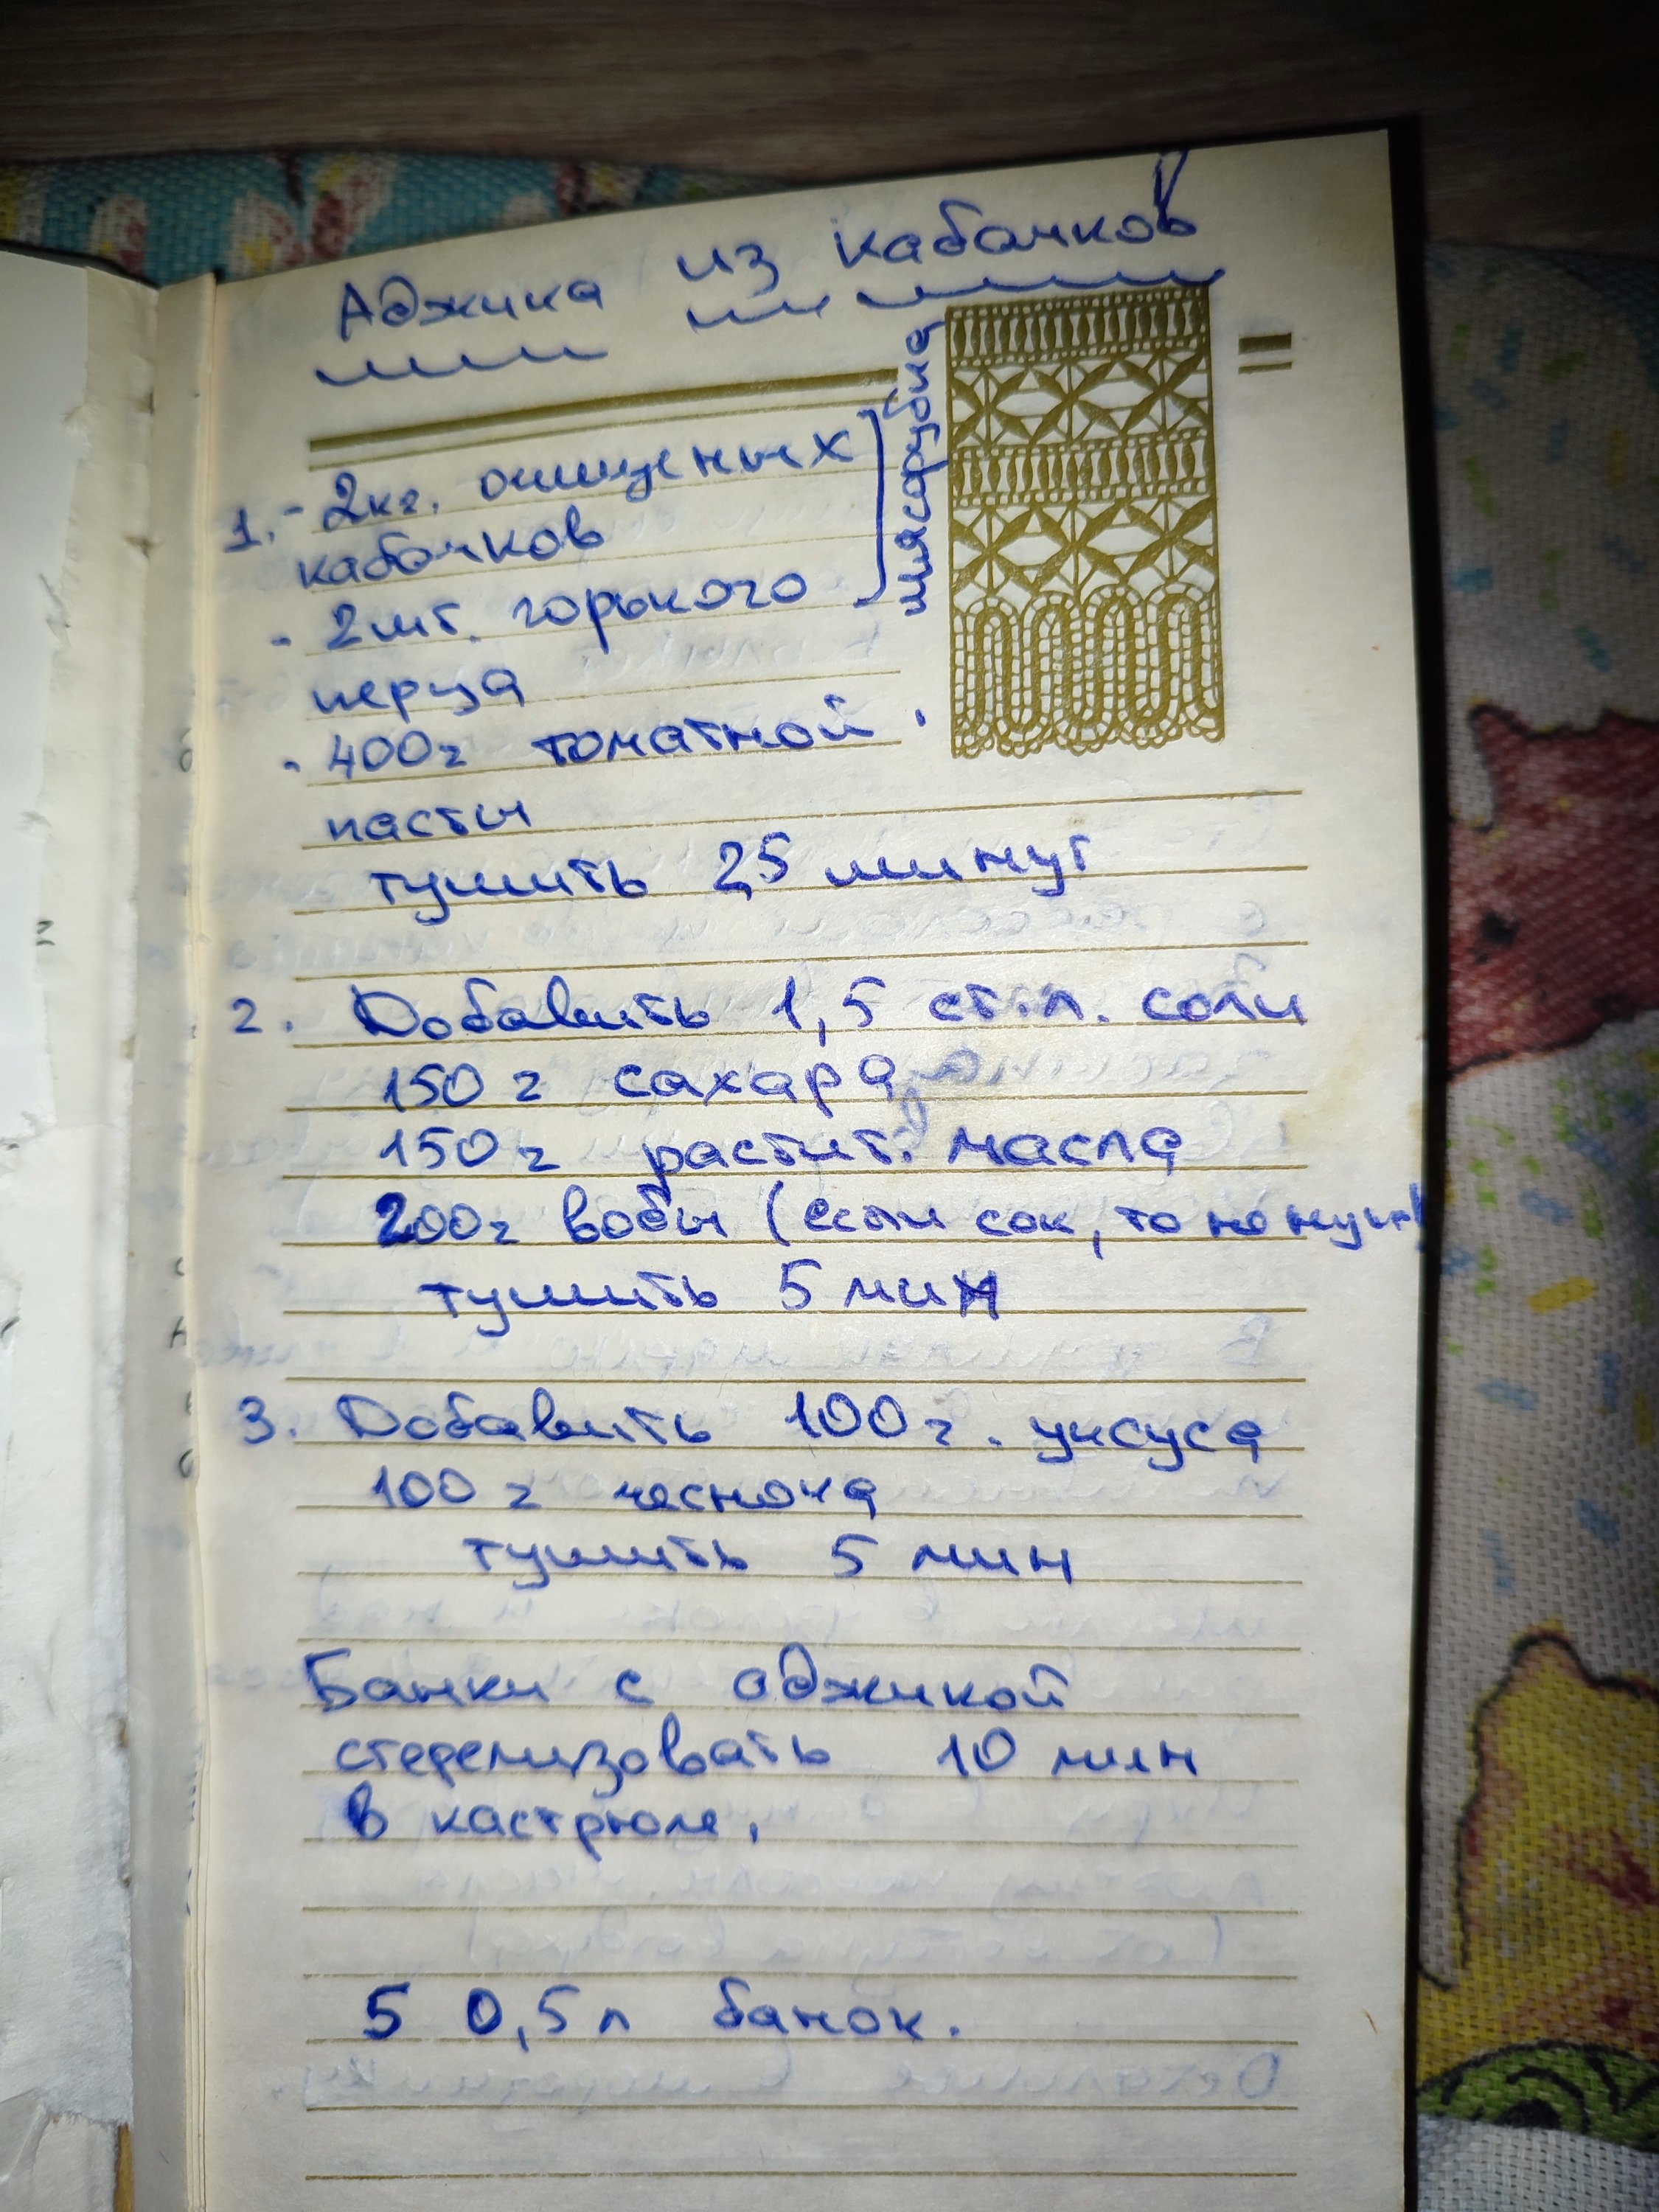 Аджика из кабачков
1. - 2кг. очищеных
кабачков
- 2шт. горького
перца
мясорубка
- 400г томатной
пасты
тушить 25 минут
2. Добавить 1,5 ст.л. соли
150 г сахара
150 г растит. масла
200г воды (если сок, то не нужн)
тушить 5 мин
3. Добавить 100г. уксуса
100 г чеснока
тушить 5 мин
Банки с аджикой
стерелизовать 10 мин
в кастрюле.
5 0,5 л банок.